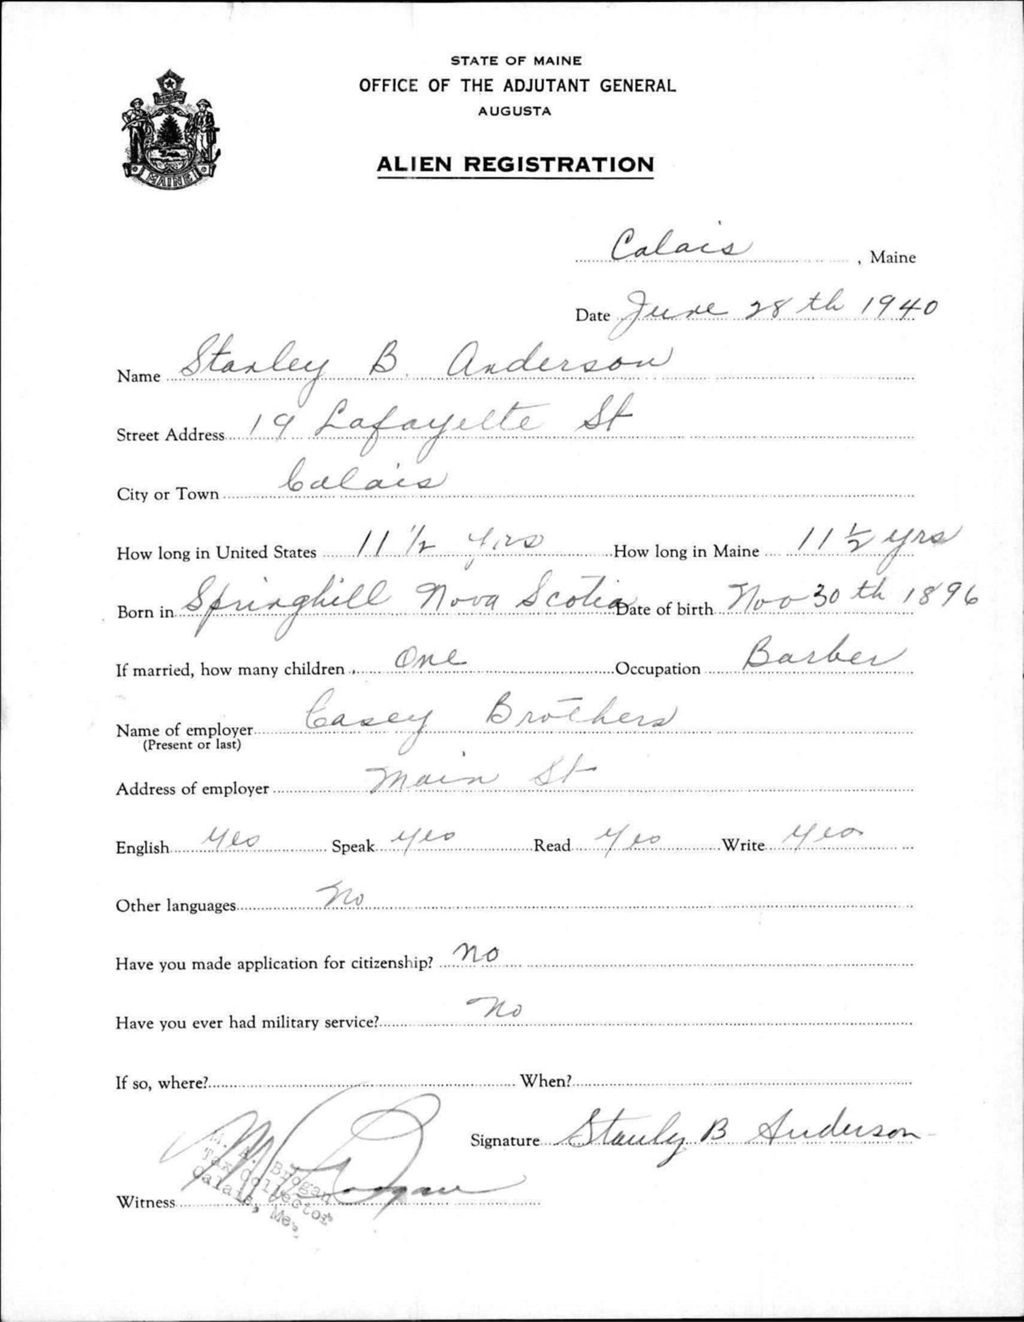 STATE OF MAINE
OFFICE OF THE ADJUTANT GENERAL
AUGUSTA
MAINE
ALIEN REGISTRATION
Calais, Maine
Date June 28th 1940
Name Stanley B. Anderson
Street Address 19 Lafayette St
City or Town Calais
How long in United States 11 1/2 yrs How long in Maine 11 1/2 yrs
Born in Springhill Nova Scotia Date of birth Nov 30th 1896
If married, how many children One Occupation Barber
Name of employer Casey Brothers
(Present or last)
Address of employer Main St
English Yes Speak yes Read Yes Write Yes
Other languages No
Have you made application for citizenship? No
Have you ever had military service? No
If so, where? When?
Signature Stanley B Anderson
M. A. Brogan
Tax Collector
Calais, Me.
Witness M A Brogan